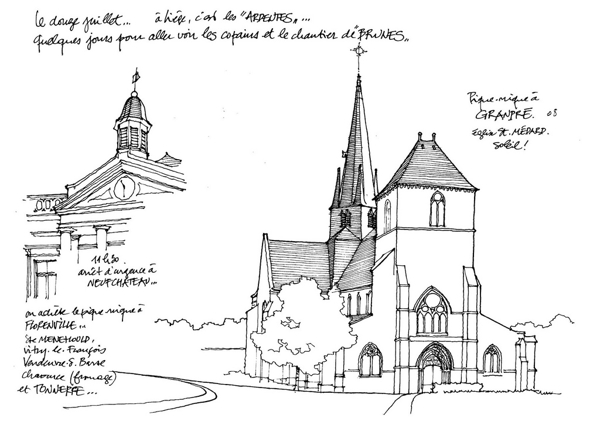 le douze juillet... à Liège, c'est les "ARDENTES"...
quelques jours pour aller voir les copains et le chantier de "BRUNES"..
Pique-nique à
GRANPRÉ. 08
Eglise St. MÉDARD.
soleil!
11h30
arrêt d'urgence à
NEUFCHÂTEAU...
on achète le pique nique à
FLORENVILLE..
Ste MENEHOULD,
vitry-le-François
Vendeuvre-s-Barse
chaource (fromage)
et TONNERRE...